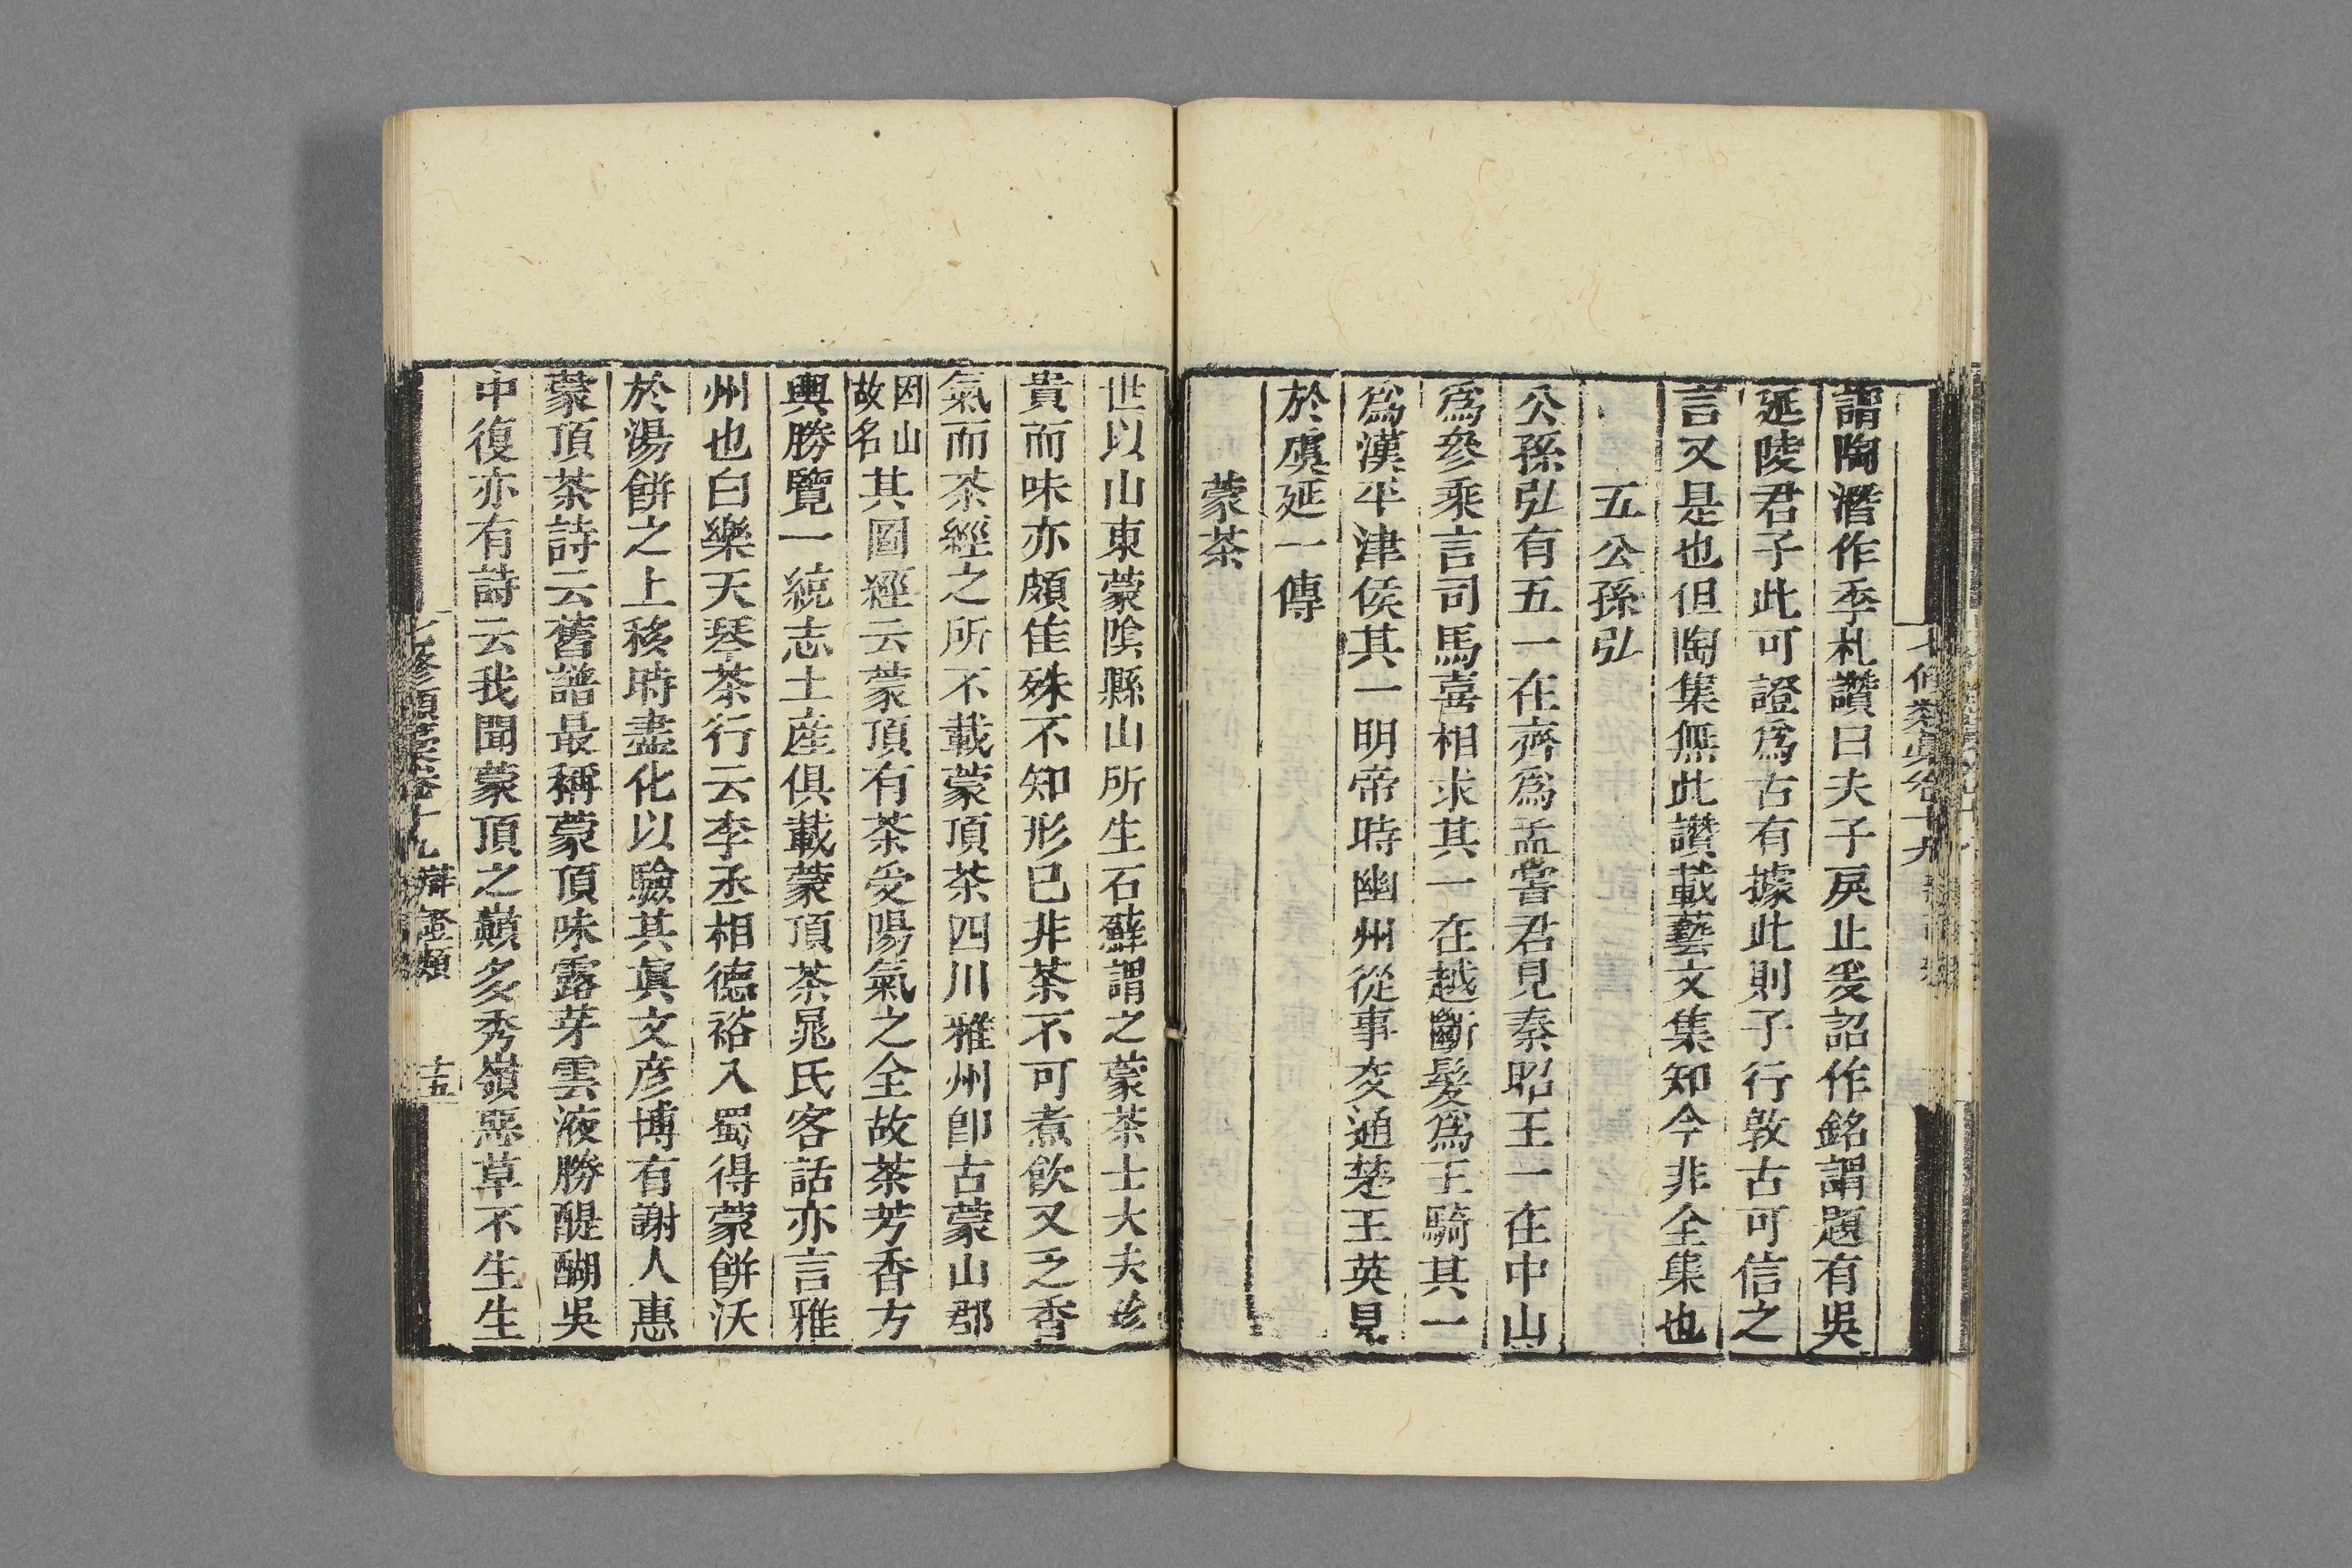 謂陶潛作季札讚曰夫子戾止爰詔作銘謂題有吳
延陵君子此可證爲古有據此則子行敦古可信之
言又是也但陶集無此讚載藝文集知今非全集也
五公孫弘
公孫弘有五一在齊爲孟嘗君見秦昭王一在中山
爲參乘言司馬喜相求其一在越斷髮爲王騎其一
爲漢平津侯其一明帝時幽州從事交通楚王英見
於虞延一傳
蒙茶
世以山東蒙陰縣山所生石蘚謂之蒙茶士大夫珍
貴而味亦頗佳殊不知形已非茶不可煮飲又乏香
氣而茶經之所不載蒙頂茶四川雅州卽古蒙山郡
因山故名其圖經云蒙頂有茶受陽氣之全故茶芳香方
輿勝覽一統志土産俱載蒙頂茶晁氏客話亦言雅
州也白樂天琴茶行云李丞相德裕入蜀得蒙餅沃
於湯餅之上移時盡化以驗其眞文彦博有謝人惠
蒙頂茶詩云舊譜最稱蒙頂味露芽雲液勝醍醐吳
中復亦有詩云我聞蒙頂之巔多秀嶺惡草不生生
七修類藁卷十九 辯證類 十五